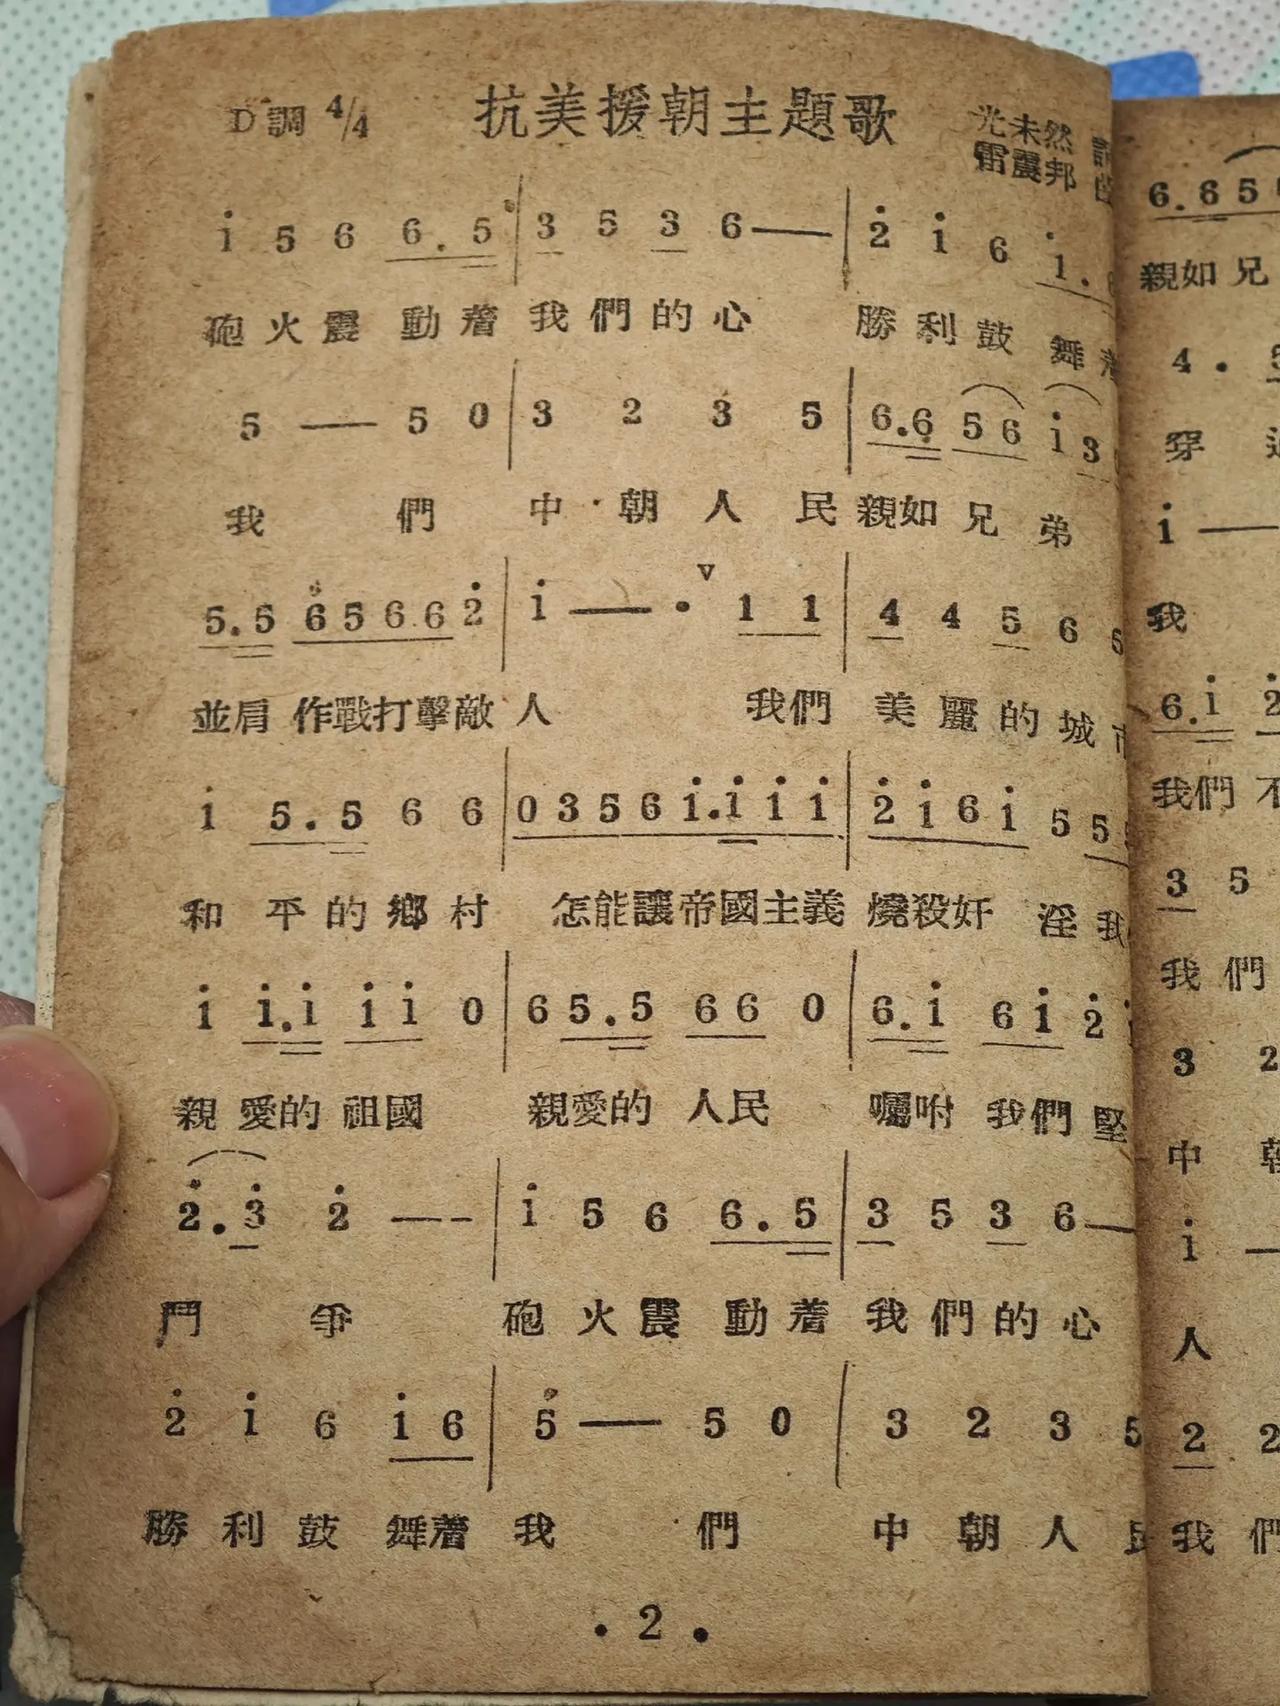 D調 4/4 抗美援朝主題歌 光未然
雷震邦
i 5 6 6.5 | 3 5 3 6 — | 2 i 6 i.
砲火震動着我們的心 勝利鼓舞着
5 — 5 0 | 3 2 3 5 | 6.6 5 6 i 3
我們中朝人民親如兄弟
5.5 6 5 6 6 2 | i — · v 1 1 | 4 4 5 6
並肩作戰打擊敵人 我們美麗的城市
i 5.5 6 6 | 0 3 5 6 i.i i i | 2 i 6 i 5 5
和平的鄉村 怎能讓帝國主義燒殺奸淫我
i i.i i i 0 | 6 5.5 6 6 0 | 6.i 6 i 2
親愛的祖國 親愛的人民 囑咐我們堅
2.3 2 — — | i 5 6 6.5 | 3 5 3 6 —
鬥爭 砲火震動着我們的心
2 i 6 i 6 | 5 — 5 0 | 3 2 3 5
勝利鼓舞着我們 中朝人民
· 2 ·
6.6 5
親如兄
4 .
穿
i —
我
6.i 2
我們不
3 5
我們
3 2
中朝
i —
人
2 2
我們